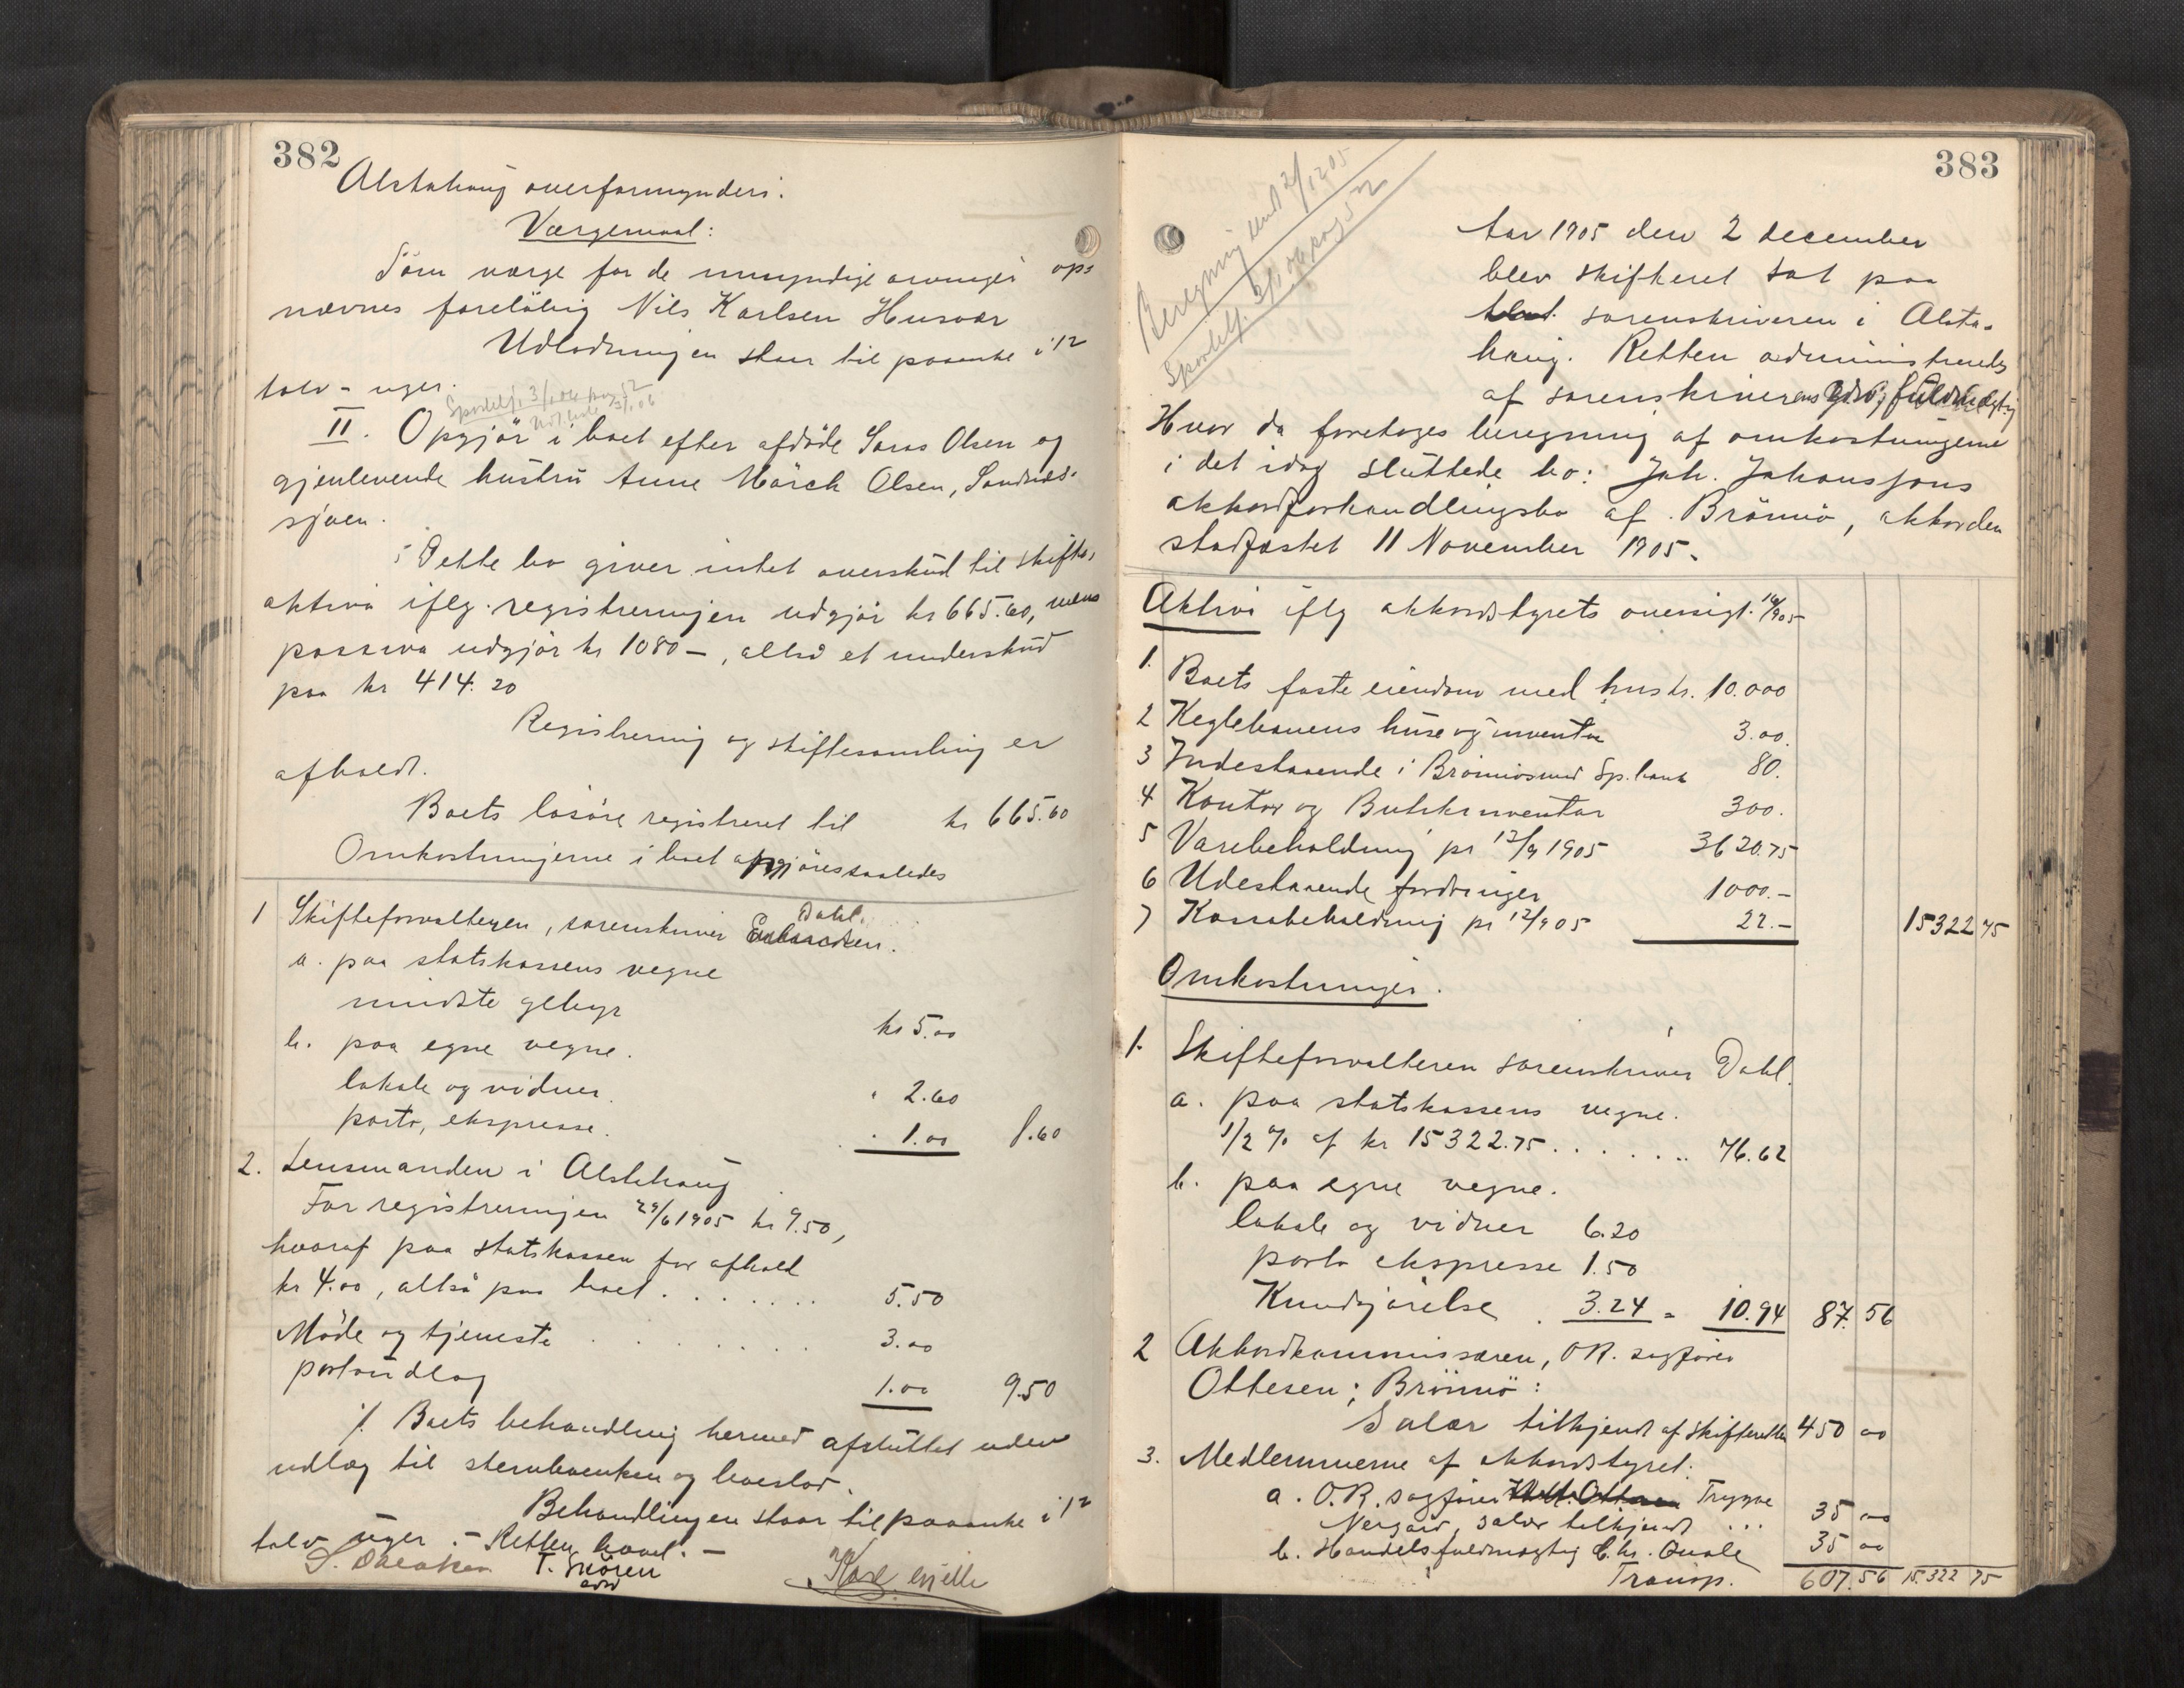 382
Alstahaug overformynderi.
Værgemaal:
Som værge for de umyndige arvinger op-
nævnes foreløbig Nils Karlsen Husvær
Udlodningen staar til paaanke i 12
tolv - uger.
II. Opgjör i boet efter afdöde Soras Olsen og
gjenlevende hustru Anne Mörch Olsen, Sandnes-
sjöen.
Dette bo giver intet overskud til skifte,
aktiva iflg. registreringen udgjör kr 665.60, mens
passiva udgjör kr 1080 –, altså et underskud
paa kr 414.20
Registrering og skiftesamling er
afholdt.
Boets lösöre registreret til kr 665.60
Omkostningerne i boet opgjöres saaledes
1 Skifteforvalteren, sorenskriver Dahl.
a. paa statskassens vegne
mindste gebyr kr 5.00
b. paa egne vegne.
lokale og vidner. " 2.60
porto, ekspresse. " 1.00 8.60
2. Lensmanden i Alstahaug
For registreringen 29/6 1905 kr 9.50,
hvoraf paa statskassen for afhold
kr 4.00, altså paa boet . . . . . . . 5.50
Möde og tjeneste . . . . . . . 3.00
portoudlag 1.00 9.50
./. Boets behandling hermed afsluttet uden
udlæg til stervboenken og boeslod.
Behandlingen staar til paaanke i 12
tolv uger. – Retten hævet. –
T. Skören
383
Beregning
Aar 1905 den 2 december
blev skifteret sat paa
sorenskriveren i Alsta-
haug. Retten administreredes
af sorenskriverens edsv. fuldmægtig
Hvor da foretoges beregning af omkostningerne
i det idag sluttede bo: Joh. Johanssons
akkordforhandlingsbo af Brönnö, akkorden
stadfæstet 11 November 1905.
Aktiva iflg akkordstyrets oversigt 16/9 05
1. Boets faste eiendom med hus kr. 10.000
2 Keglebanens huse og inventar 3.00.
3 Indestaaende i Brönnösund Sp.bank 80.
4 Kontor og Butikinventar 300.
5 Varebeholdning pr 12/9 1905 3620.75
6 Udestaaende fordringer 1000.-
7 Kassabeholdning pr 12/9 05 22.- 15322 75
Omkostninger.
1. Skifteforvalteren sorenskriver Dahl.
a. paa statskassens vegne.
1/2 % af kr 15322.75 . . . . . . 76.62
b. paa egne vegne.
lokale og vidner 6.20
porto ekspresse 1.50
Kundgjörelse . 3.24 = 10.94 87.56
2 Akkordkommissæren, O.R. sagförer
Ottesen; Brönnö:
Salær tilkjendt af skifteretten 450 00
3. Medlemmerne af akkordstyret:
a. O.R. sagförer Trygve
Nergård, salær tilkjendt ... 35 00
b. Handelsfuldmægtig C. Chr. Qvale 35 00
Transp. 607.56 15.322 75